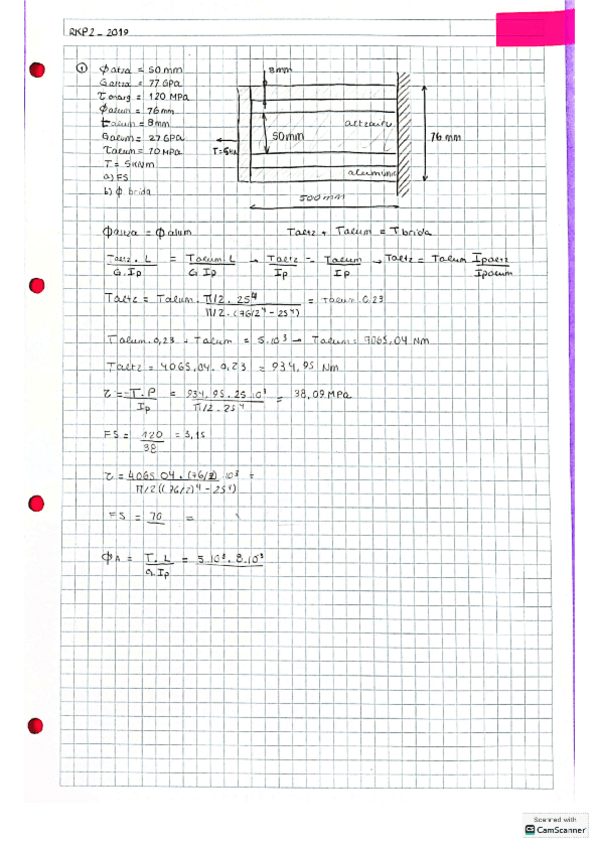 RKP2 - 2019
① ϕ altza = 50 mm
G altza = 77 GPa
τ onarg = 120 MPa
ϕ alum = 76 mm
t alum = 8 mm
G alum = 27 GPa
τ alum = 70 MPa
T = 5 kNm
a) FS
b) ϕ brida
8mm
50mm
76 mm
T=5k
aluminio
500 mm
ϕ altza = ϕ alum
Taltz + Talum = T brida
Taltz . L / G . Ip = Talum . L / G Ip → Taltz / Ip = Talum / Ip → Taltz = Talum Ip altz / Ip alum
Taltz = Talum . π/2 . 25⁴ / π/2 . (76/2⁴ - 25⁴) = Talum . 0,23
Talum . 0,23 + Talum = 5.10³ → Talum = 4065,04 Nm
Taltz = 4065,04 . 0,23 = 934,95 Nm
τ = T . P / Ip = 934,95 . 25 . 10³ / π/2 . 25⁴ = 38,09 MPa
FS = 120 / 38 = 3,15
τ = 4065,04 . (76/2) . 10³ / π/2 ((76/2)⁴ - 25⁴) =
FS = 70 =
ϕ A = T . L / G . Ip = 5.10³ . 8.10³
Scanned with
CamScanner